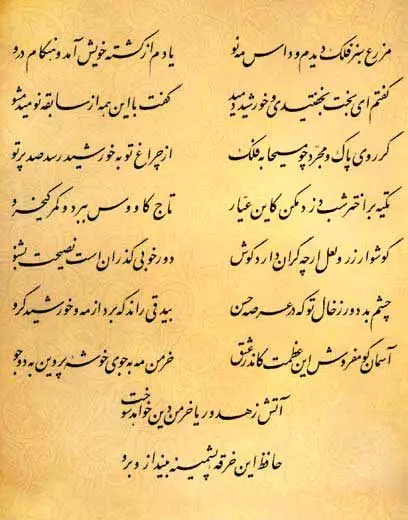 مزرع سبز فلک دیدم و داس مه نو یادم از کشته خویش آمد و هنگام درو
گفتم ای بخت بخفتیدی و خورشید دمید گفت با این همه از سابقه نومید مشو
گر روی پاک و مجرد چو مسیحا به فلک از چراغ تو به خورشید رسد صد پرتو
تکیه بر اختر شب دزد مکن کاین عیار تاج کاووس ببرد و کمر کیخسرو
گوشوار زر و لعل ار چه گران دارد گوش دور خوبی گذران است نصیحت بشنو
چشم بد دور ز خال تو که در عرصه حسن بیدقی راند که برد از مه و خورشید گرو
آسمان گو مفروش این عظمت کاندر عشق خرمن مه به جوی خوشه پروین به دو جو
آتش زهد و ریا خرمن دین خواهد سوخت
حافظ این خرقه پشمینه بینداز و برو